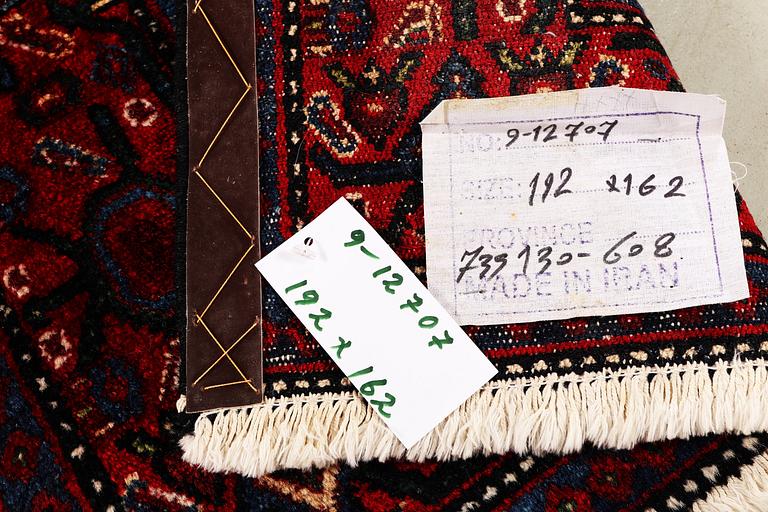 9-12707
192 x 162
NO: 9-12707
SIZE: 192 x162
PROVINCE
739130-608
MADE IN IRAN